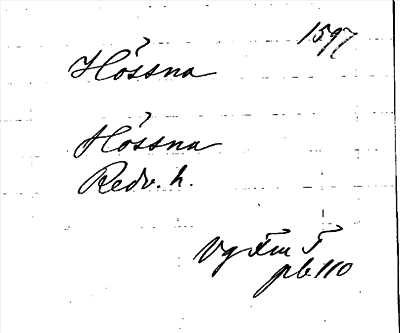 1597
Hössna
Hössna
Redv. h.
Vg Fm T
pb 110